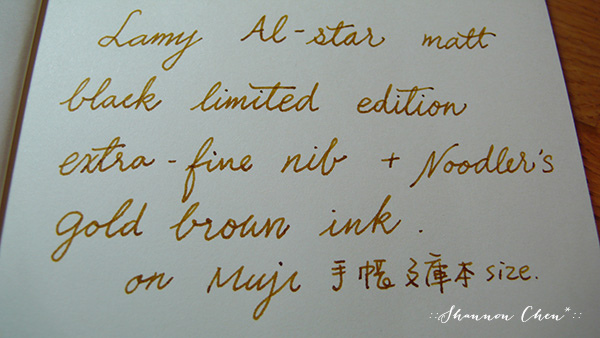 Lamy Al-star matt
black limited edition
extra-fine nib + Noodler's
gold brown ink.
on Muji 手帳文庫本 size.
::Shannon Chen*::